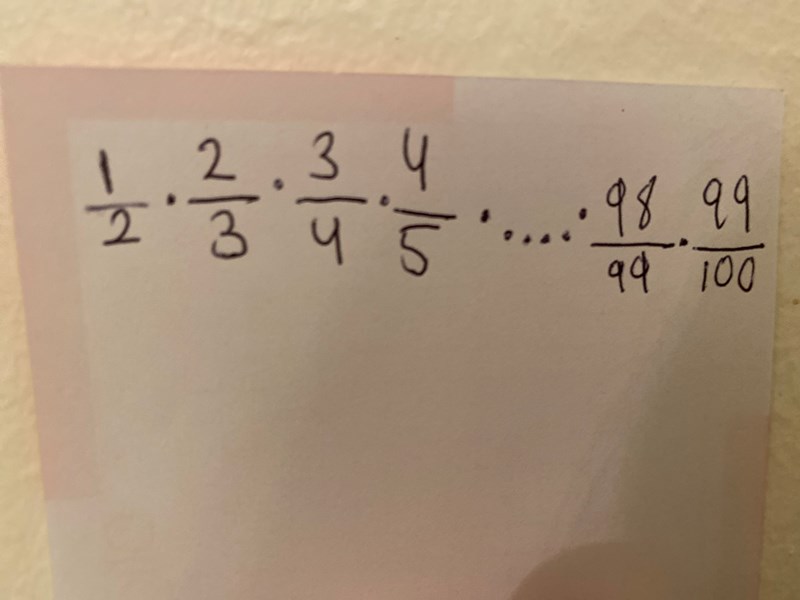 1/2 · 2/3 · 3/4 · 4/5 · .... · 98/99 · 99/100